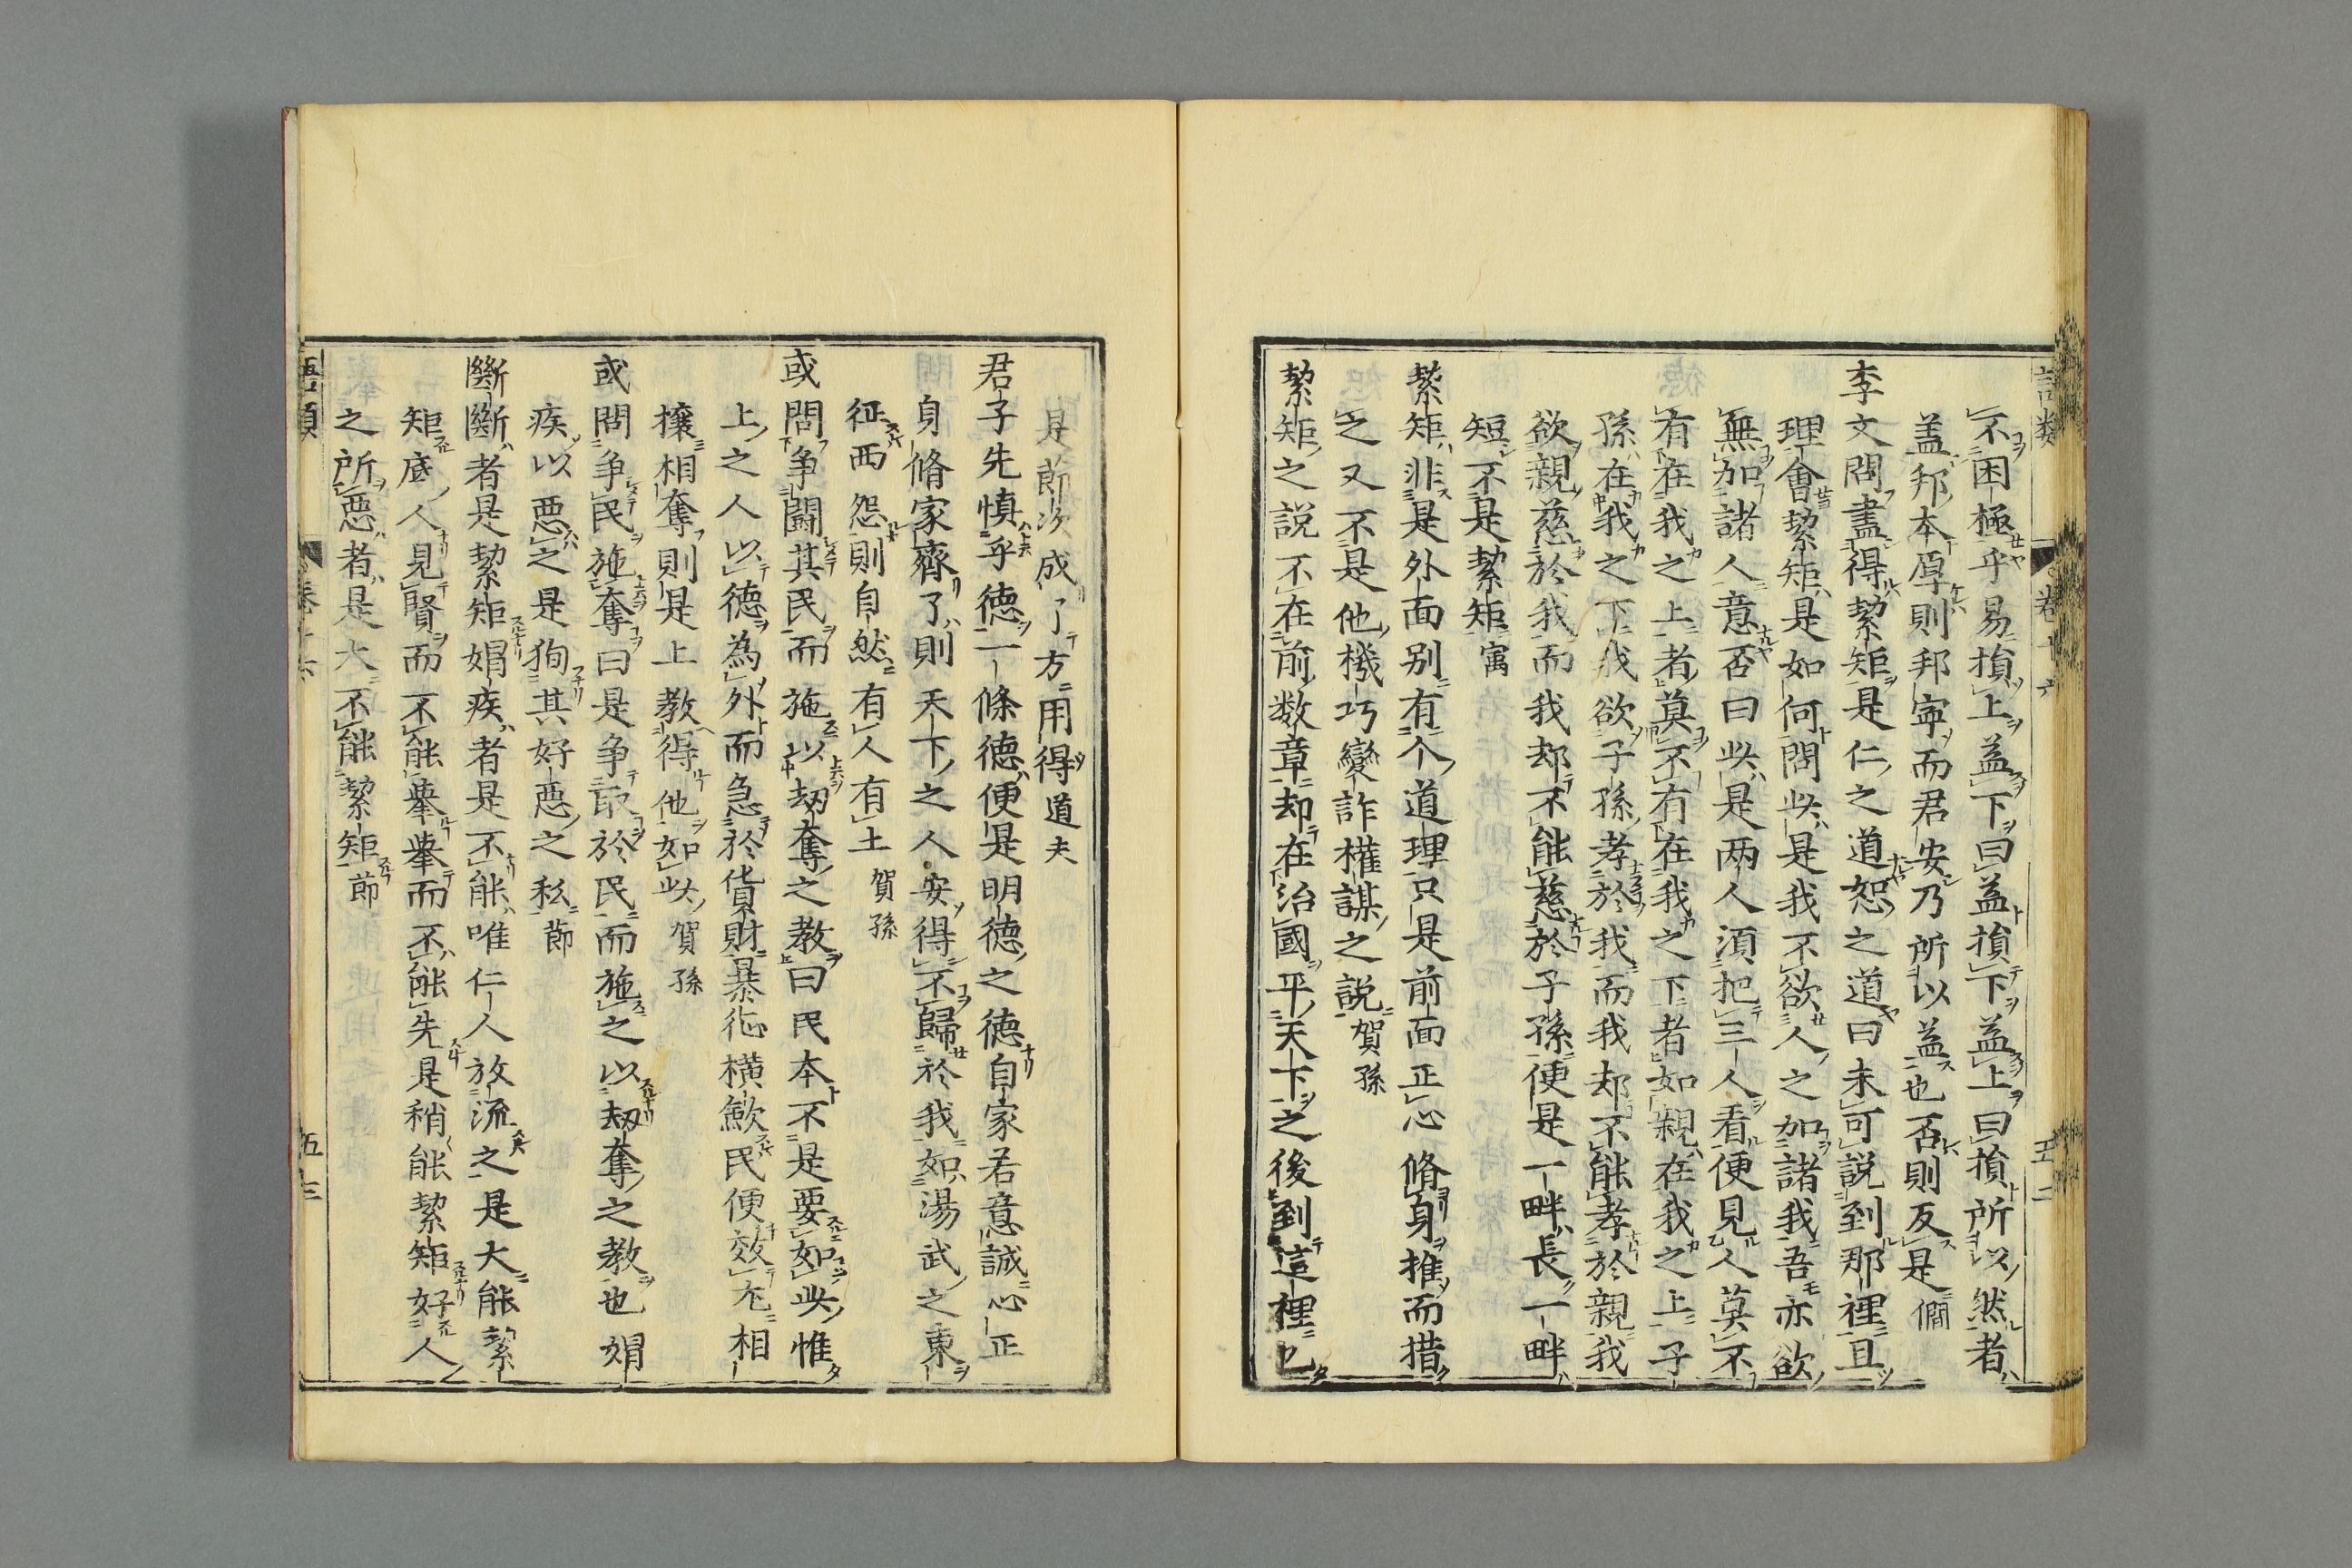 語類 卷十六 五二
不困極乎易損上益下曰益損下益上曰損所以然者
蓋邦本厚則邦寧而君安乃所以益也否則反是 僩
李文問盡得絜矩是仁之道恕之道曰未可説到那裡且
理會絜矩是如何問此是我不欲人之加諸我吾亦欲
無加諸人意否曰此是兩人須把三人看便見人莫不
有在我之上者莫不有在我之下者如親在我之上子
孫在我之下我欲子孫孝於我而我却不能孝於親我
欲親慈於我而我却不能慈於子孫便是一畔長一畔
短不是絜矩 寓
絜矩非是外面别有个道理只是前面正心脩身推而措
之又不是他機巧變詐權謀之説 賀孫
絜矩之説不在前数章却在治國平天下之後到這裡也
是節次成了方用得 道夫
君子先慎乎徳一條徳便是明徳之徳自家若意誠心正
身脩家齊了則天下之人安得不歸於我如湯武之東
征西怨則自然有人有土 賀孫
或問争鬪其民而施以劫奪之教曰民本不是要如此惟
上之人以徳為外而急於貨財暴征横歛民便效尤相
攘相奪則是上教得他如此 賀孫
或問争民施奪曰是争取於民而施之以劫奪之教也媢
疾以惡之是狥其好惡之私 節
斷斷者是絜矩媢疾者是不能唯仁人放流之是大能絜
矩底人見賢而不能擧擧而不能先是稍能絜矩好人
之所惡者是大不能絜矩 節
語類 卷十六 五三